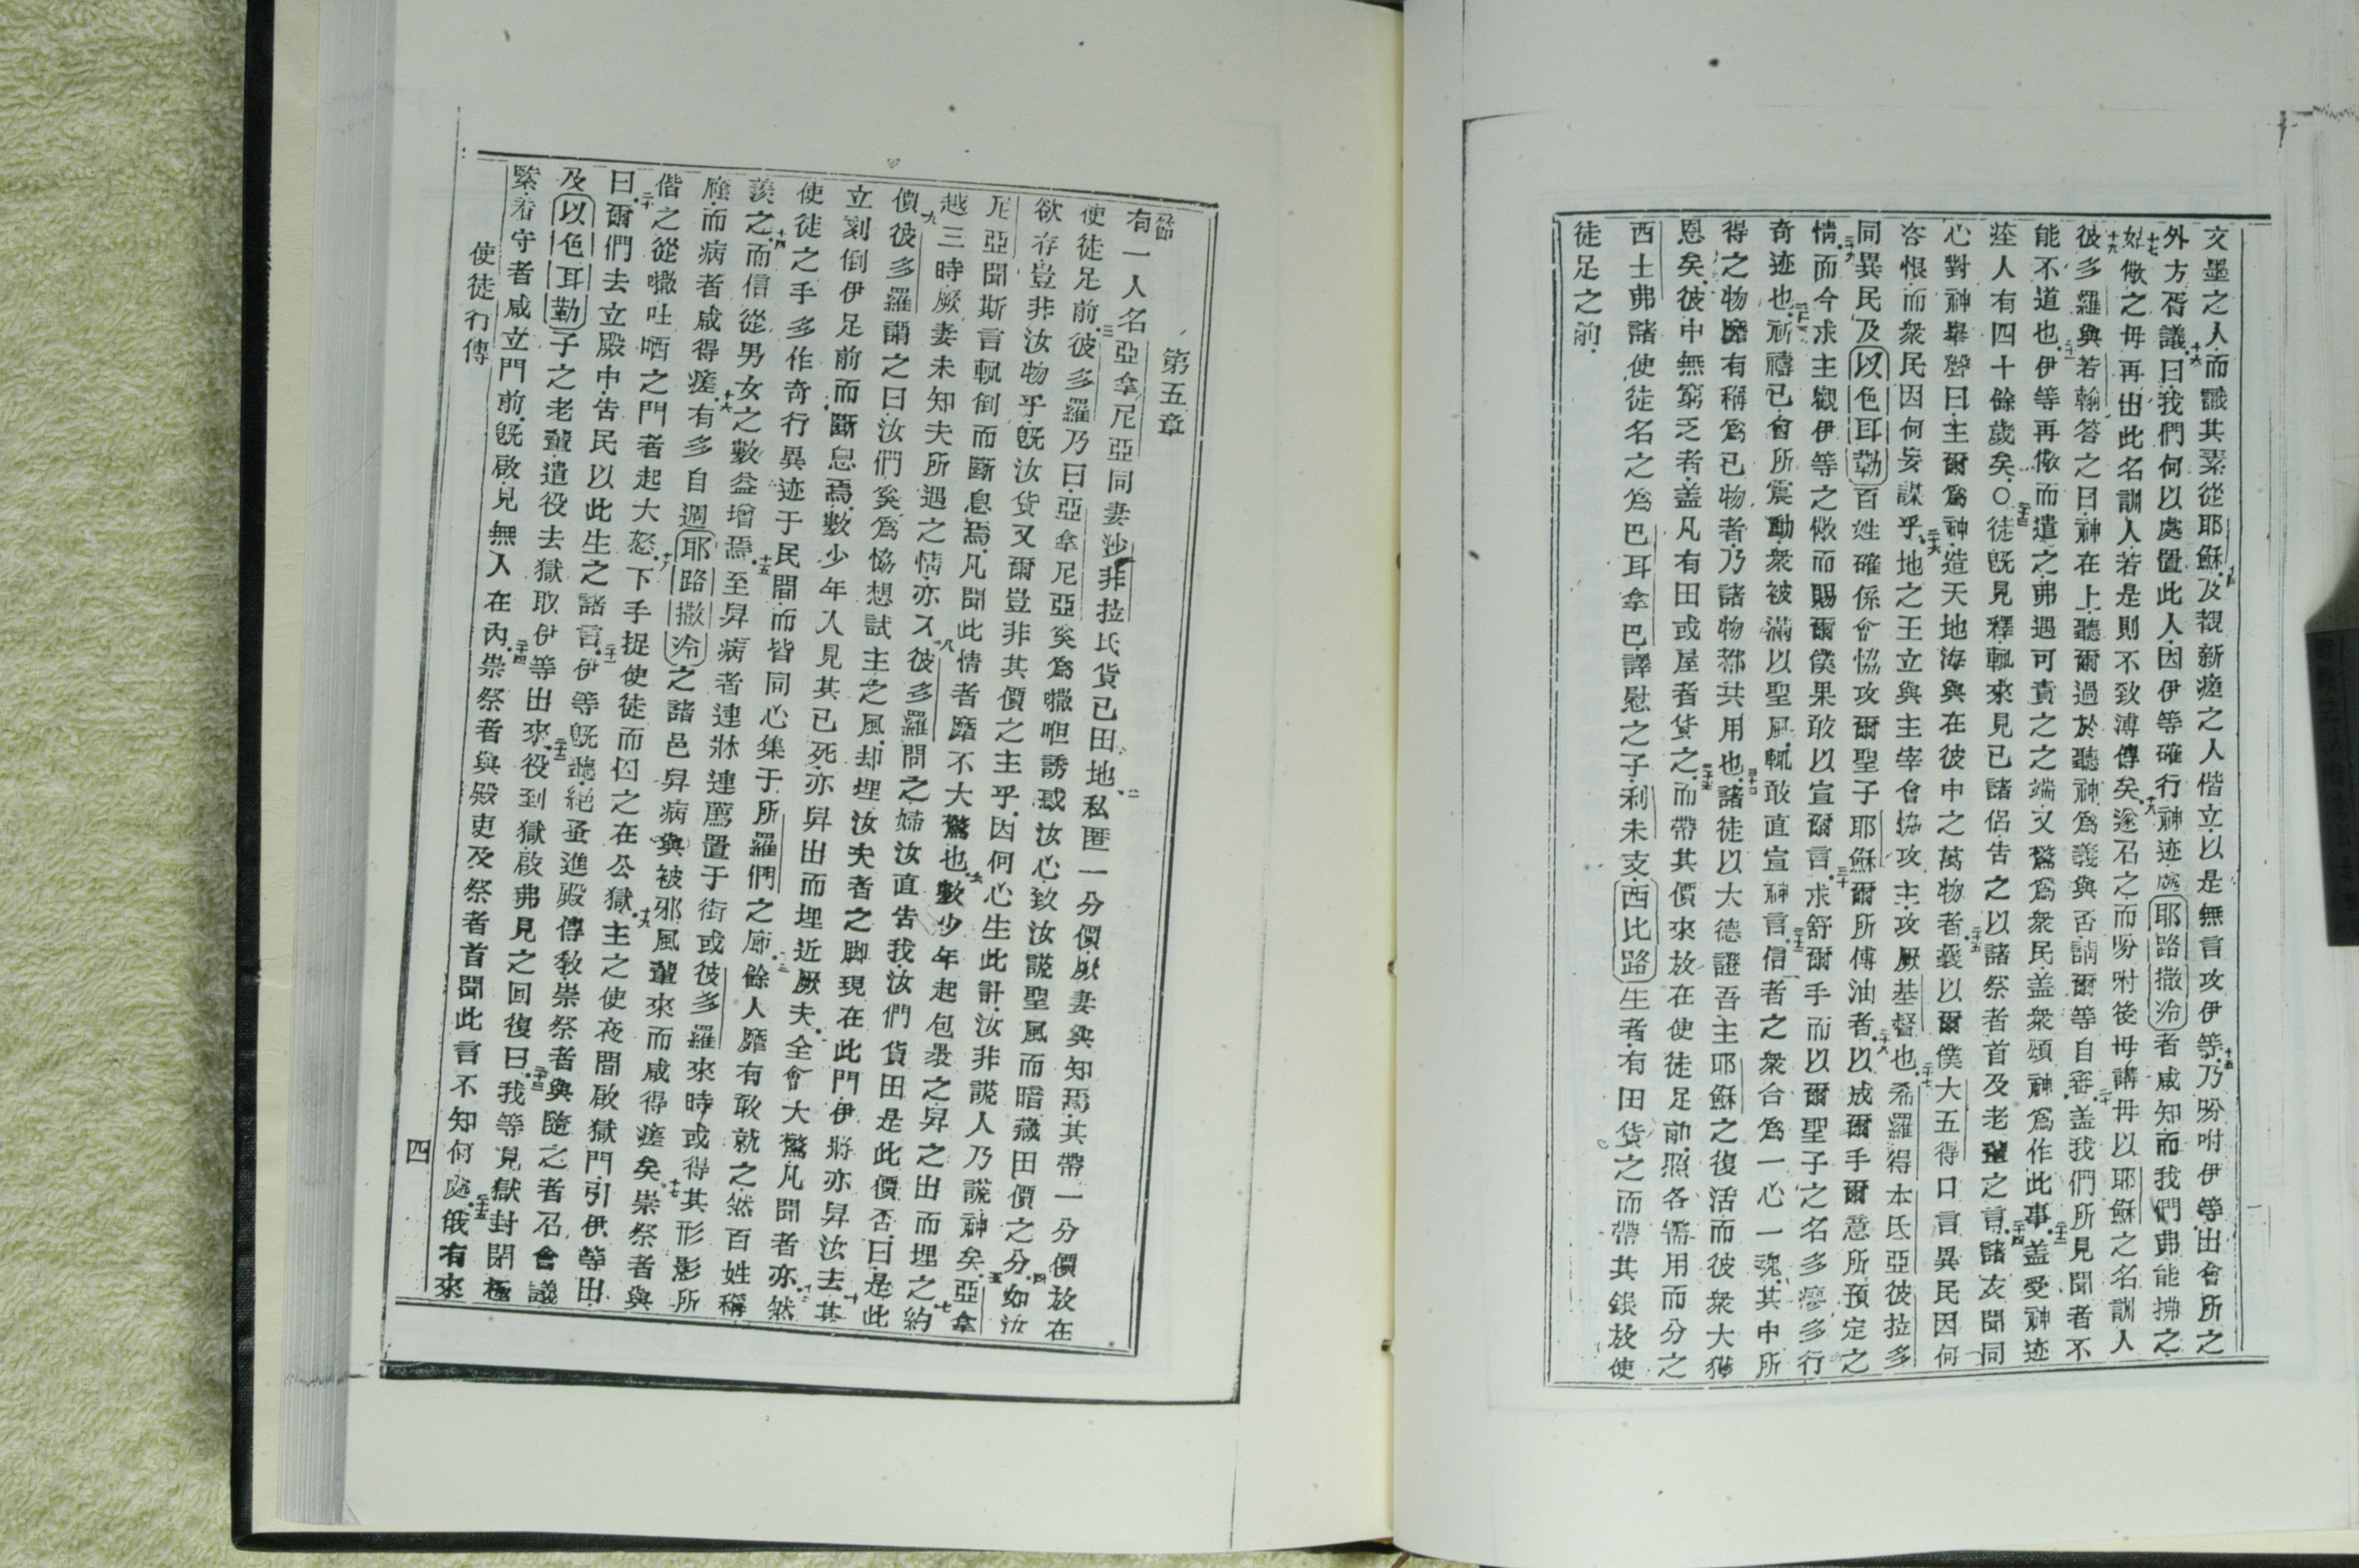 文墨之人而識其素從耶穌十四及視新瘥之人偕立以是無言攻伊等十五乃吩咐伊等出會所之
外方胥議十六曰我們何以處置此人因伊等確行神迹處耶路撒冷者咸知而我們弗能拂之
十七如儆之毋再出此名訓人若是則不致溥傳矣十八遂召之而吩咐後毋講毋以耶穌之名訓人
十九彼多羅與若翰答之曰神在上聽爾過於聽神為義與否請爾等自審二十盖我們所見聞者不
能不道也二十一伊等再儆而遣之弗遇可責之之端又驚為衆民盖衆頌神為作此事二十二盖受神迹
痊人有四十餘歲矣○二十三徒旣見釋輒來見已諸侶吿之以諸祭者首及老輩之言二十四諸友聞同
心對神舉聲曰主爾為神造天地海與在彼中之萬物者二十五曩以爾僕大五得口言異民因何
咨恨而衆民因何妄謀乎二十六地之王立與主宰會協攻主攻厥基督也二十七希羅得本氐亞彼拉多
同異民及以色耳勒百姓確係會恊攻爾聖子耶穌爾所傅油者二十八以成爾手爾意所預定之
情二十九而今求主觀伊等之儆而賜爾僕果敢以宣爾言三十求舒爾手而以爾聖子之名多瘳多行
奇迹也三十一祈禱已會所震動衆被滿以聖風輒敢直宣神言三十二信者之衆合為一心一魂其中所
得之物靡有稱為已物者乃諸物都共用也三十三諸徒以大德證吾主耶穌之復活而彼衆大獲
恩矣彼中無窮乏者盖凡有田或屋者貨之三十五而帶其價來放在使徒足前照各需用而分之
西士弗諸使徒名之為巴耳拿巴譯慰之子利未支西比路生者有田貨之而帶其銀放使
徒足之前
第五章
節有一人名亞拿尼亞同妻沙非拉氏貨已田地二私匿一分價厥妻與知焉其帶一分價放在
使徒足前三彼多羅乃曰亞拿尼亞奚為㘔呾誘惑汝心致汝謊聖風而暗藏田價之分四如汝
欲存豈非汝物乎旣汝貨又爾豈非其價之主乎因何心生此計汝非謊人乃謊神矣五亞拿
尼亞聞斯言輒倒而斷息焉凡聞此情者靡不大驚也六數少年起包裹之舁之出而埋之七約
越三時厥妻未知夫所遇之情亦入八彼多羅問之婦汝直吿我汝們貨田是此價否曰是此
價九彼多羅謂之曰汝們奚為恊想試主之風却埋汝夫者之脚現在此門伊將亦舁汝去十其
立刻倒伊足前而斷息焉數少年人見其已死亦舁出而埋近厥夫十一全會大驚凡聞者亦然十二
使徒之手多作奇行異迹于民間而皆同心集于所羅們之廊十三餘人靡有敢就之然百姓稱
羨之十四而信從男女之數益增焉十五至舁病者連牀連薦置于街或彼多羅來時或得其形影所
廕而病者咸得瘥十六有多自週耶路撒冷之諸邑舁病與被邪風輩來而咸得瘥矣十七崇祭者與
偕之從㘔吐哂之門者起大怒十八下手捉使徒而囚之在公獄十九主之使夜間啟獄門引伊等出
曰二十爾們去立殿中吿民以此生之諸言二十一伊等旣聽絕蚤進殿傳敎崇祭者與隨之者召會議
及以色耳勒子之老輩遣役去獄取伊等出來二十二役到獄啟弗見之回復曰二十三我等見獄封閉極
緊看守者咸立門前旣啟見無人在內二十四崇祭者與殿吏及祭者首聞此言不知何處二十五俄有來
使徒行傳
四